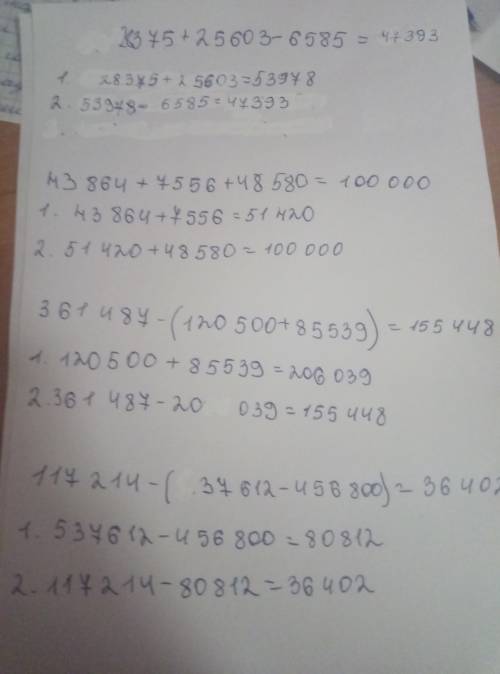 28375+25603-6585=47393
1. 28375+25603=53978
2. 53978-6585=47393
3.
43 864+7556+48 580=100 000
1. 43 864+7556=51 420
2. 51 420+48580=100 000
361 487-(120 500+85539)=155 448
1. 120500+85539=206 039
2. 361 487-20 039=155 448
117 214-( 37 612-456 800)=36 402
1. 537612-456 800=80812
2. 117214-80812=36402